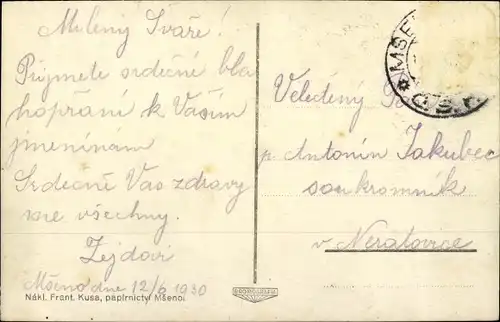 Milený Sváře!
Prijmete srdečné bla
hopřání k Vašim
jmeninám
Srdečně Vas zdravy
me všechny.
Zejdovi
Mšeno dne 12/6 1930
Nákl. Frant. Kusa, papírnictví Mšenoi.
Veledéný
p. Antonín Jakubec
soukromník
v Neratovice
MŠE